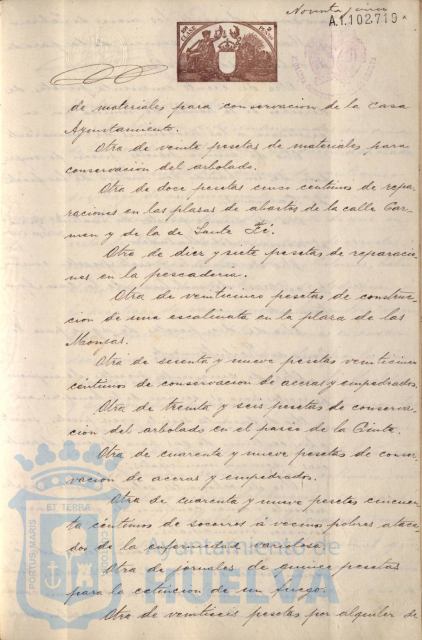 Noventa y cinco
A.1.102.719
de materiales para conservacion de la Casa
Ayuntamiento.
Otra de veinte pesetas de materiales para
conservación del arbolado.
Otra de doce pesetas cinco centimos de repa-
raciones en las plazas de abastos de la calle Car-
men y de la de Santa Fé.
Otra de diez y siete pesetas de reparacio-
nes en la pescaderia.
Otra de veinticinco pesetas de construc-
cion de una escalinata en la plaza de las
Monjas.
Otra de sesenta y nueve pesetas veinticinco
centimos de conservacion de aceras y empedrados.
Otra de treinta y seis pesetas de conserva-
cion del arbolado en el paseo de la Cinta.
Otra de cuarenta y nueve pesetas de conser-
vacion de aceras y empedrados.
Otra de cuarenta y nueve pesetas cincuen-
ta centimos de socorros á vecinos pobres ataca-
dos de la enfermedad variolosa.
Otra de jornales de quince pesetas
para la estincion de un fuego.
Otra de veintiseis pesetas por alquiler de
PORTUS MARIS
ET TERRÆ
CUSTODIA
Ayuntamiento de
HUELVA